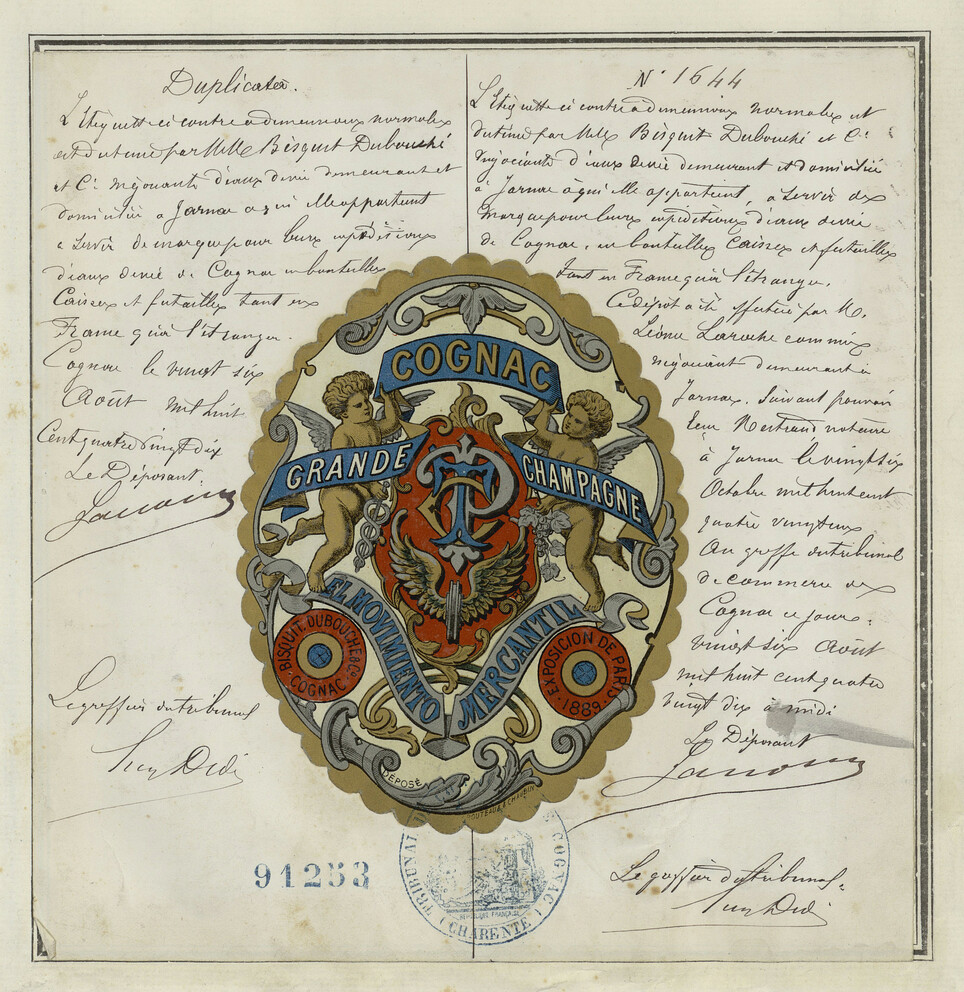 Duplicata.
L'Etiquette ci contre a dimensions normales
est destinée par MM. Bisquit Dubouché
et Cie négociants d'eaux de vie demeurant et
domiciliés à Jarnac à qui elle appartient
à servir de marque pour leurs expéditions
d'eaux de vie de Cognac en bouteilles
Caisses et futailles tant en
France qu'à l'étranger.
Cognac le vingt six
Août mil huit
Cent quatre vingt dix
Le Déposant.
Le greffier du tribunal
N° 1644
L'Etiquette ci contre a dimensions normales est
destinée par MM. Bisquit Dubouché et Cie
négociants d'eaux de vie demeurant et domiciliés
à Jarnac à qui elle appartient, à servir de
marque pour leurs expéditions d'eaux de vie
de Cognac, en bouteilles Caisses et futailles
tant en France qu'à l'étranger.
Ce dépôt a été effectué par M.
Léonce Laroche commis
négociant demeurant à
Jarnac. Suivant pouvoir
notaire
à Jarnac le vingt six
Octobre mil huit cent
quatre vingt
Au greffe du tribunal
de commerce de
Cognac ce jour:
vingt six Août
mil huit cent quatre
vingt dix à midi
Le Déposant
Le greffier du tribunal.
COGNAC
GRANDE CHAMPAGNE
EL MOVIMIENTO MERCANTIL
BISQUIT. DUBOUCHÉ & Co. COGNAC
EXPOSICION DE PARIS 1889.
DÉPOSÉ
91253
TRIBUNAL COGNAC
REPUBLIQUE FRANÇAISE
(CHARENTE)